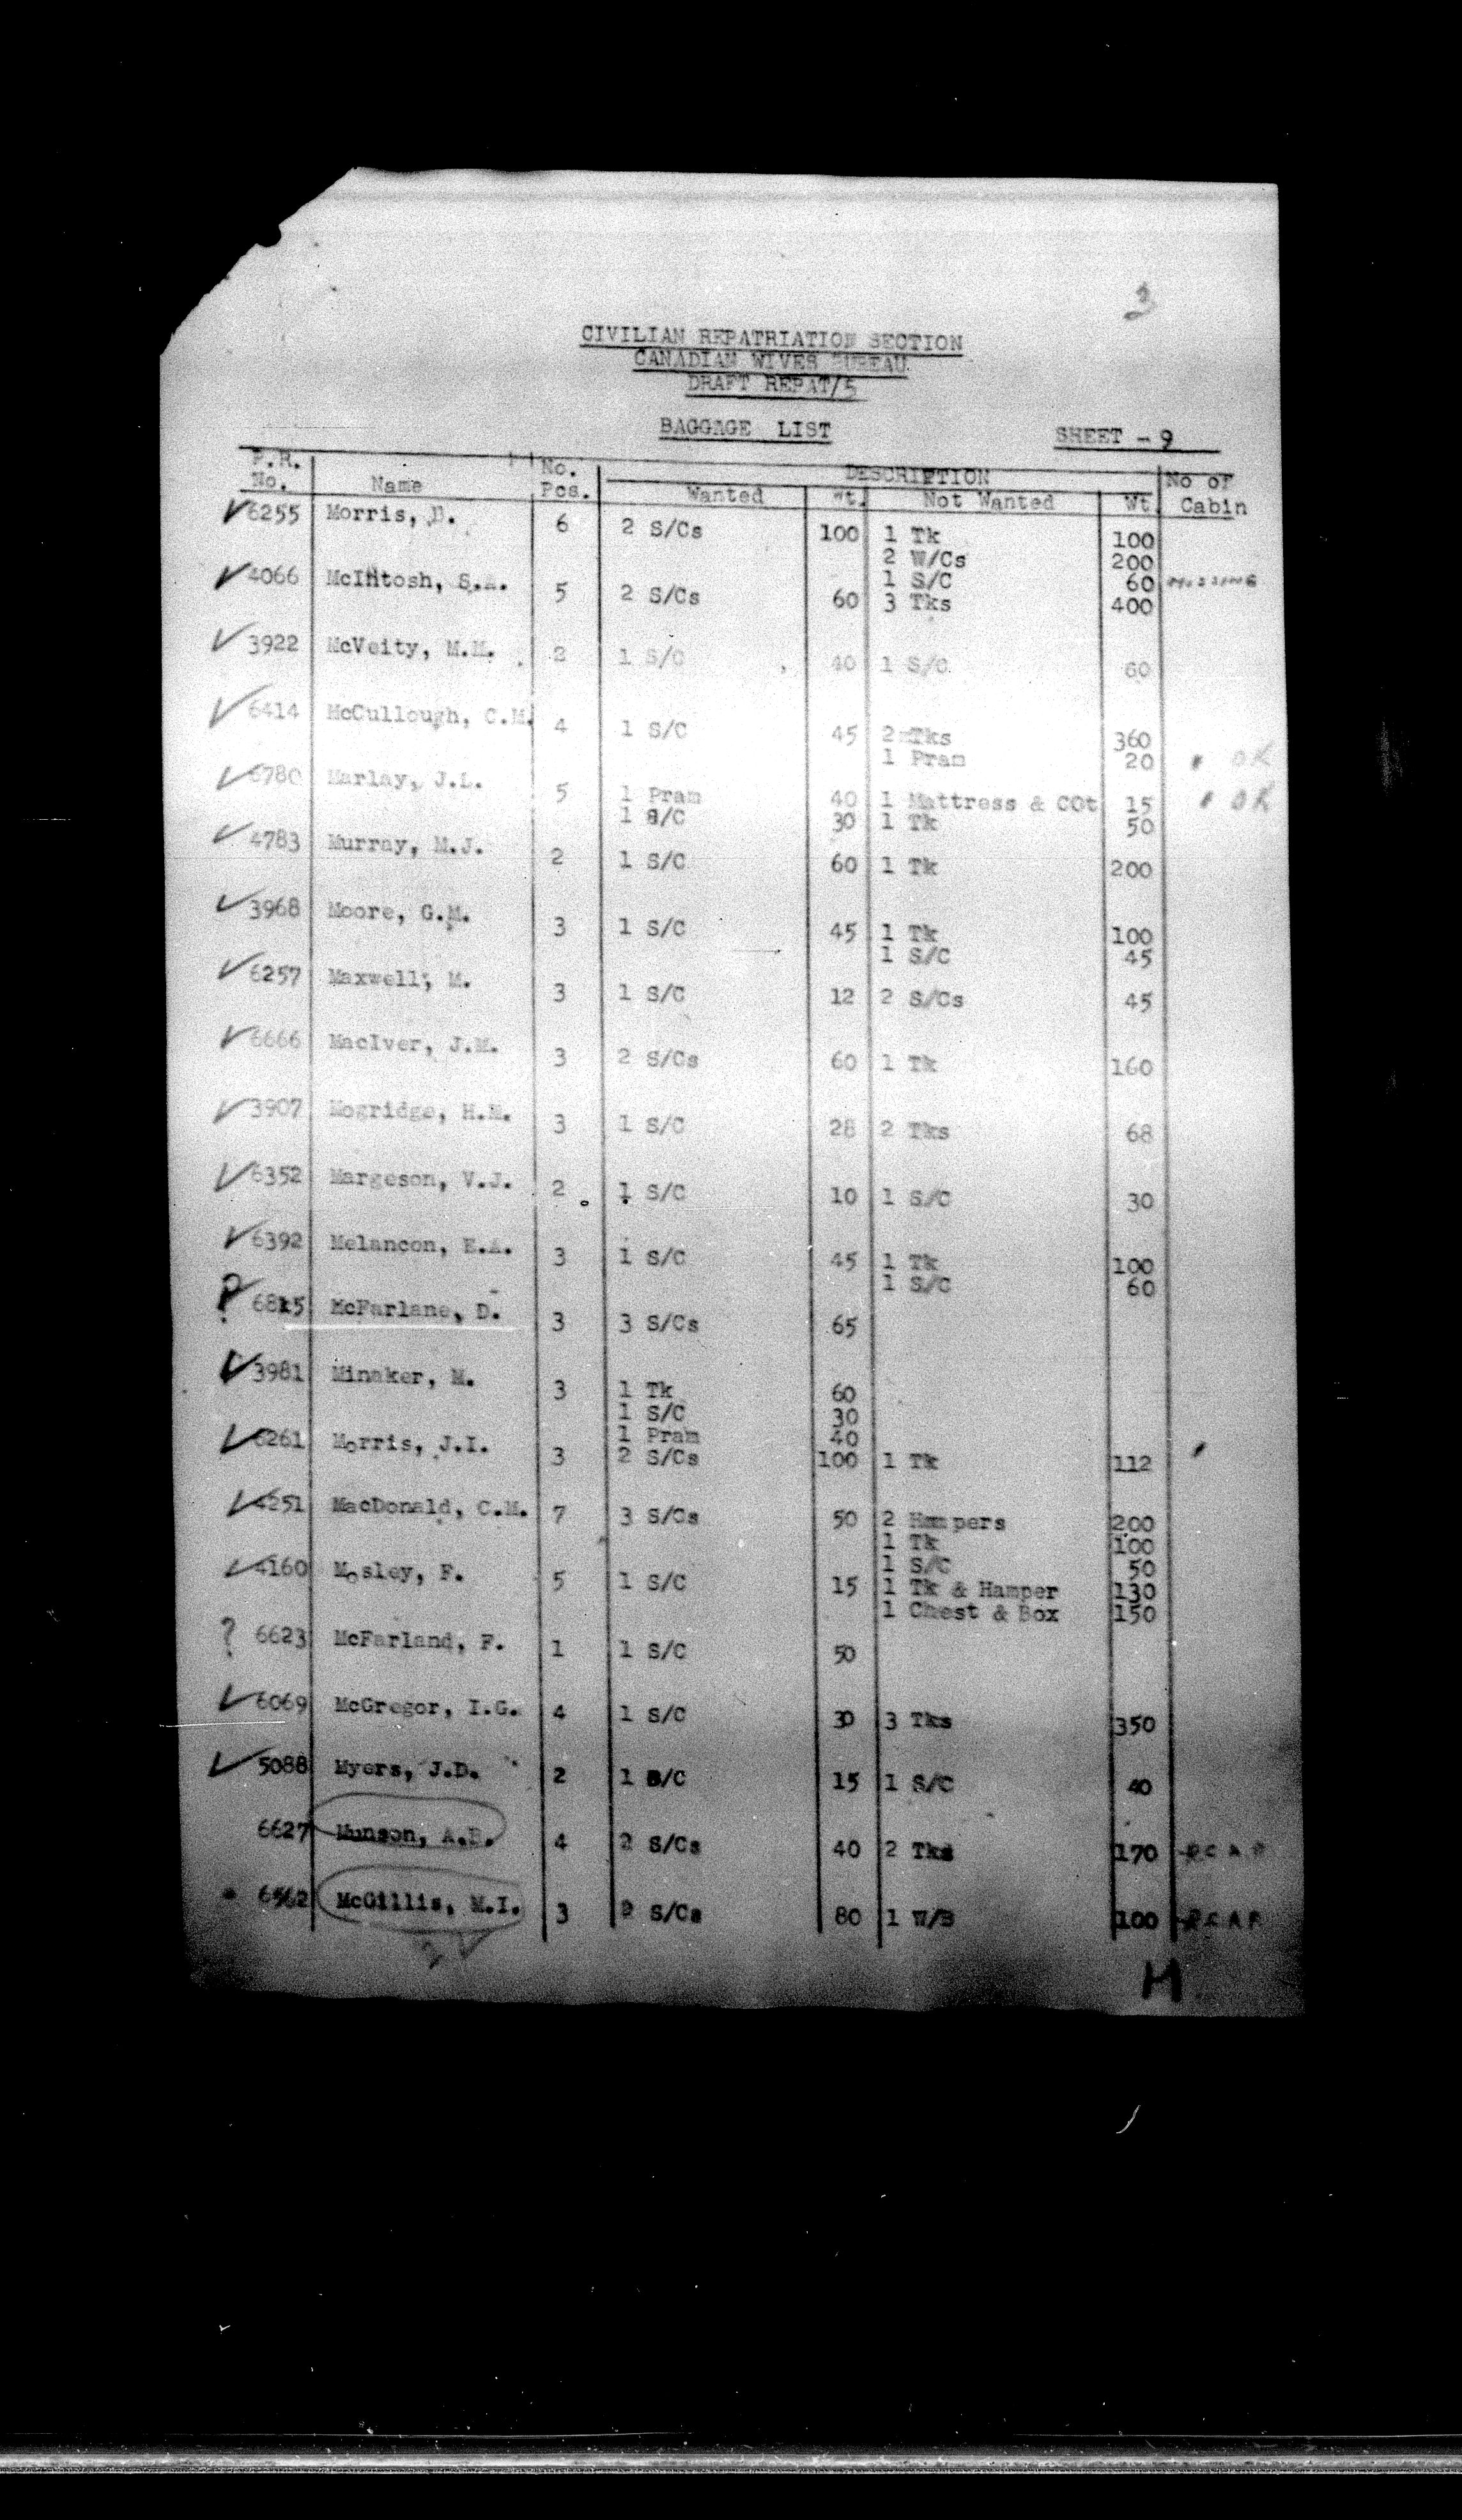 3
CIVILIAN REPATRIATION SECTION
CANADIAN WIVES BUREAU
DRAFT REPAT/5
BAGGAGE LIST SHEET - 9
P.R. No. Name No. Pcs. DESCRIPTION No of Cabin
Wanted Wt. Not Wanted Wt
6255 Morris, D. 6 2 S/Cs 100 1 Tk 100
2 W/Cs 200
1 S/C 60 MISSING
4066 McIntosh, S.A. 5 2 S/Cs 60 3 Tks 400
3922 McVeity, M.M. 2 1 S/C 40 1 S/C 60
6414 McCullough, C.M. 4 1 S/C 45 2 Tks 360
1 Pram 20 OK
6780 Marlay, J.L. 5 1 Pram 40 1 Mattress & COt 15 OK
1 S/C 30 1 Tk 50
4783 Murray, M.J. 2 1 S/C 60 1 Tk 200
3968 Moore, G.M. 3 1 S/C 45 1 Tk 100
1 S/C 45
6257 Maxwell, M. 3 1 S/C 12 2 S/Cs 45
6666 MacIver, J.M. 3 2 S/Cs 60 1 Tk 160
3907 Mogridge, H.M. 3 1 S/C 28 2 Tks 68
6352 Margeson, V.J. 2 1 S/C 10 1 S/C 30
6392 Melancon, E.A. 3 1 S/C 45 1 Tk 100
1 S/C 60
? 6815 McFarlane, D. 3 3 S/Cs 65
3981 Minaker, M. 3 1 Tk 60
1 S/C 30
1 Pram 40
6261 Morris, J.I. 3 2 S/Cs 100 1 Tk 112
4251 MacDonald, C.M. 7 3 S/Cs 50 2 Hampers 200
1 Tk 100
1 S/C 50
4160 Mosley, F. 5 1 S/C 15 1 Tk & Hamper 130
1 Chest & Box 150
? 6623 McFarland, F. 1 1 S/C 50
6069 McGregor, I.G. 4 1 S/C 30 3 Tks 350
5088 Myers, J.D. 2 1 S/C 15 1 S/C 40
6627 Munson, A.B. 4 2 S/Cs 40 2 Tks 170 RCAF
6562 McGillis, M.I. 3 2 S/Cs 80 1 W/B 100 RCAF
M